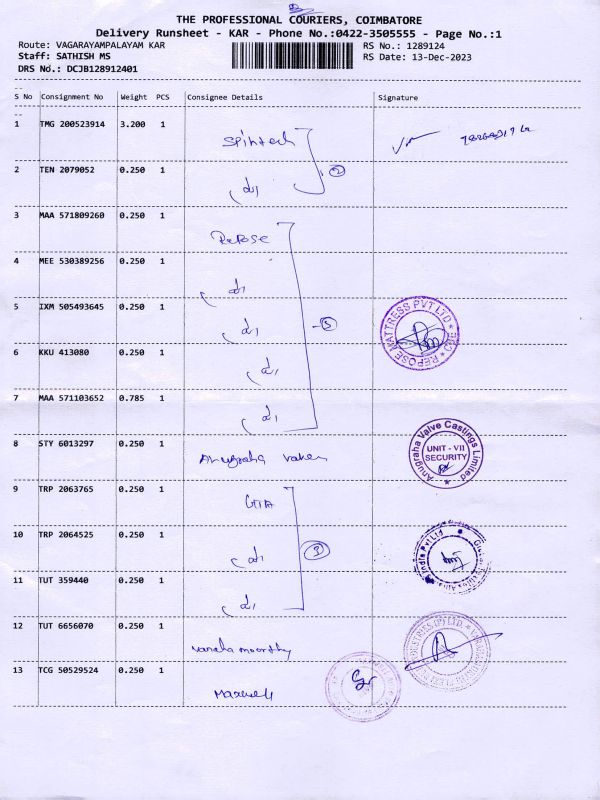 THE PROFESSIONAL COURIERS, COIMBATORE
Delivery Runsheet - KAR - Phone No.:0422-3505555 - Page No.:1
Route: VAGARAYAMPALAYAM KAR RS No.: 1289124
Staff: SATHISH MS RS Date: 13-Dec-2023
DRS No.: DCJB128912401
S No Consignment No Weight PCS Consignee Details Signature
1 TMG 200523914 3.200 1
Spintech
2 TEN 2079052 0.250 1
2
3 MAA 571809260 0.250 1
Repose
4 MEE 530389256 0.250 1
5 IXM 505493645 0.250 1
5
REPOSE MATTRESS PVT LTD
6 KKU 413080 0.250 1
7 MAA 571103652 0.785 1
8 STY 6013297 0.250 1
Anugraha
Anugraha Valve Castings Limited
UNIT - VII
SECURITY
9 TRP 2063765 0.250 1
10 TRP 2064525 0.250 1
3
India Pvt Ltd
11 TUT 359440 0.250 1
12 TUT 6656070 0.250 1
moorthy
13 TCG 50529524 0.250 1